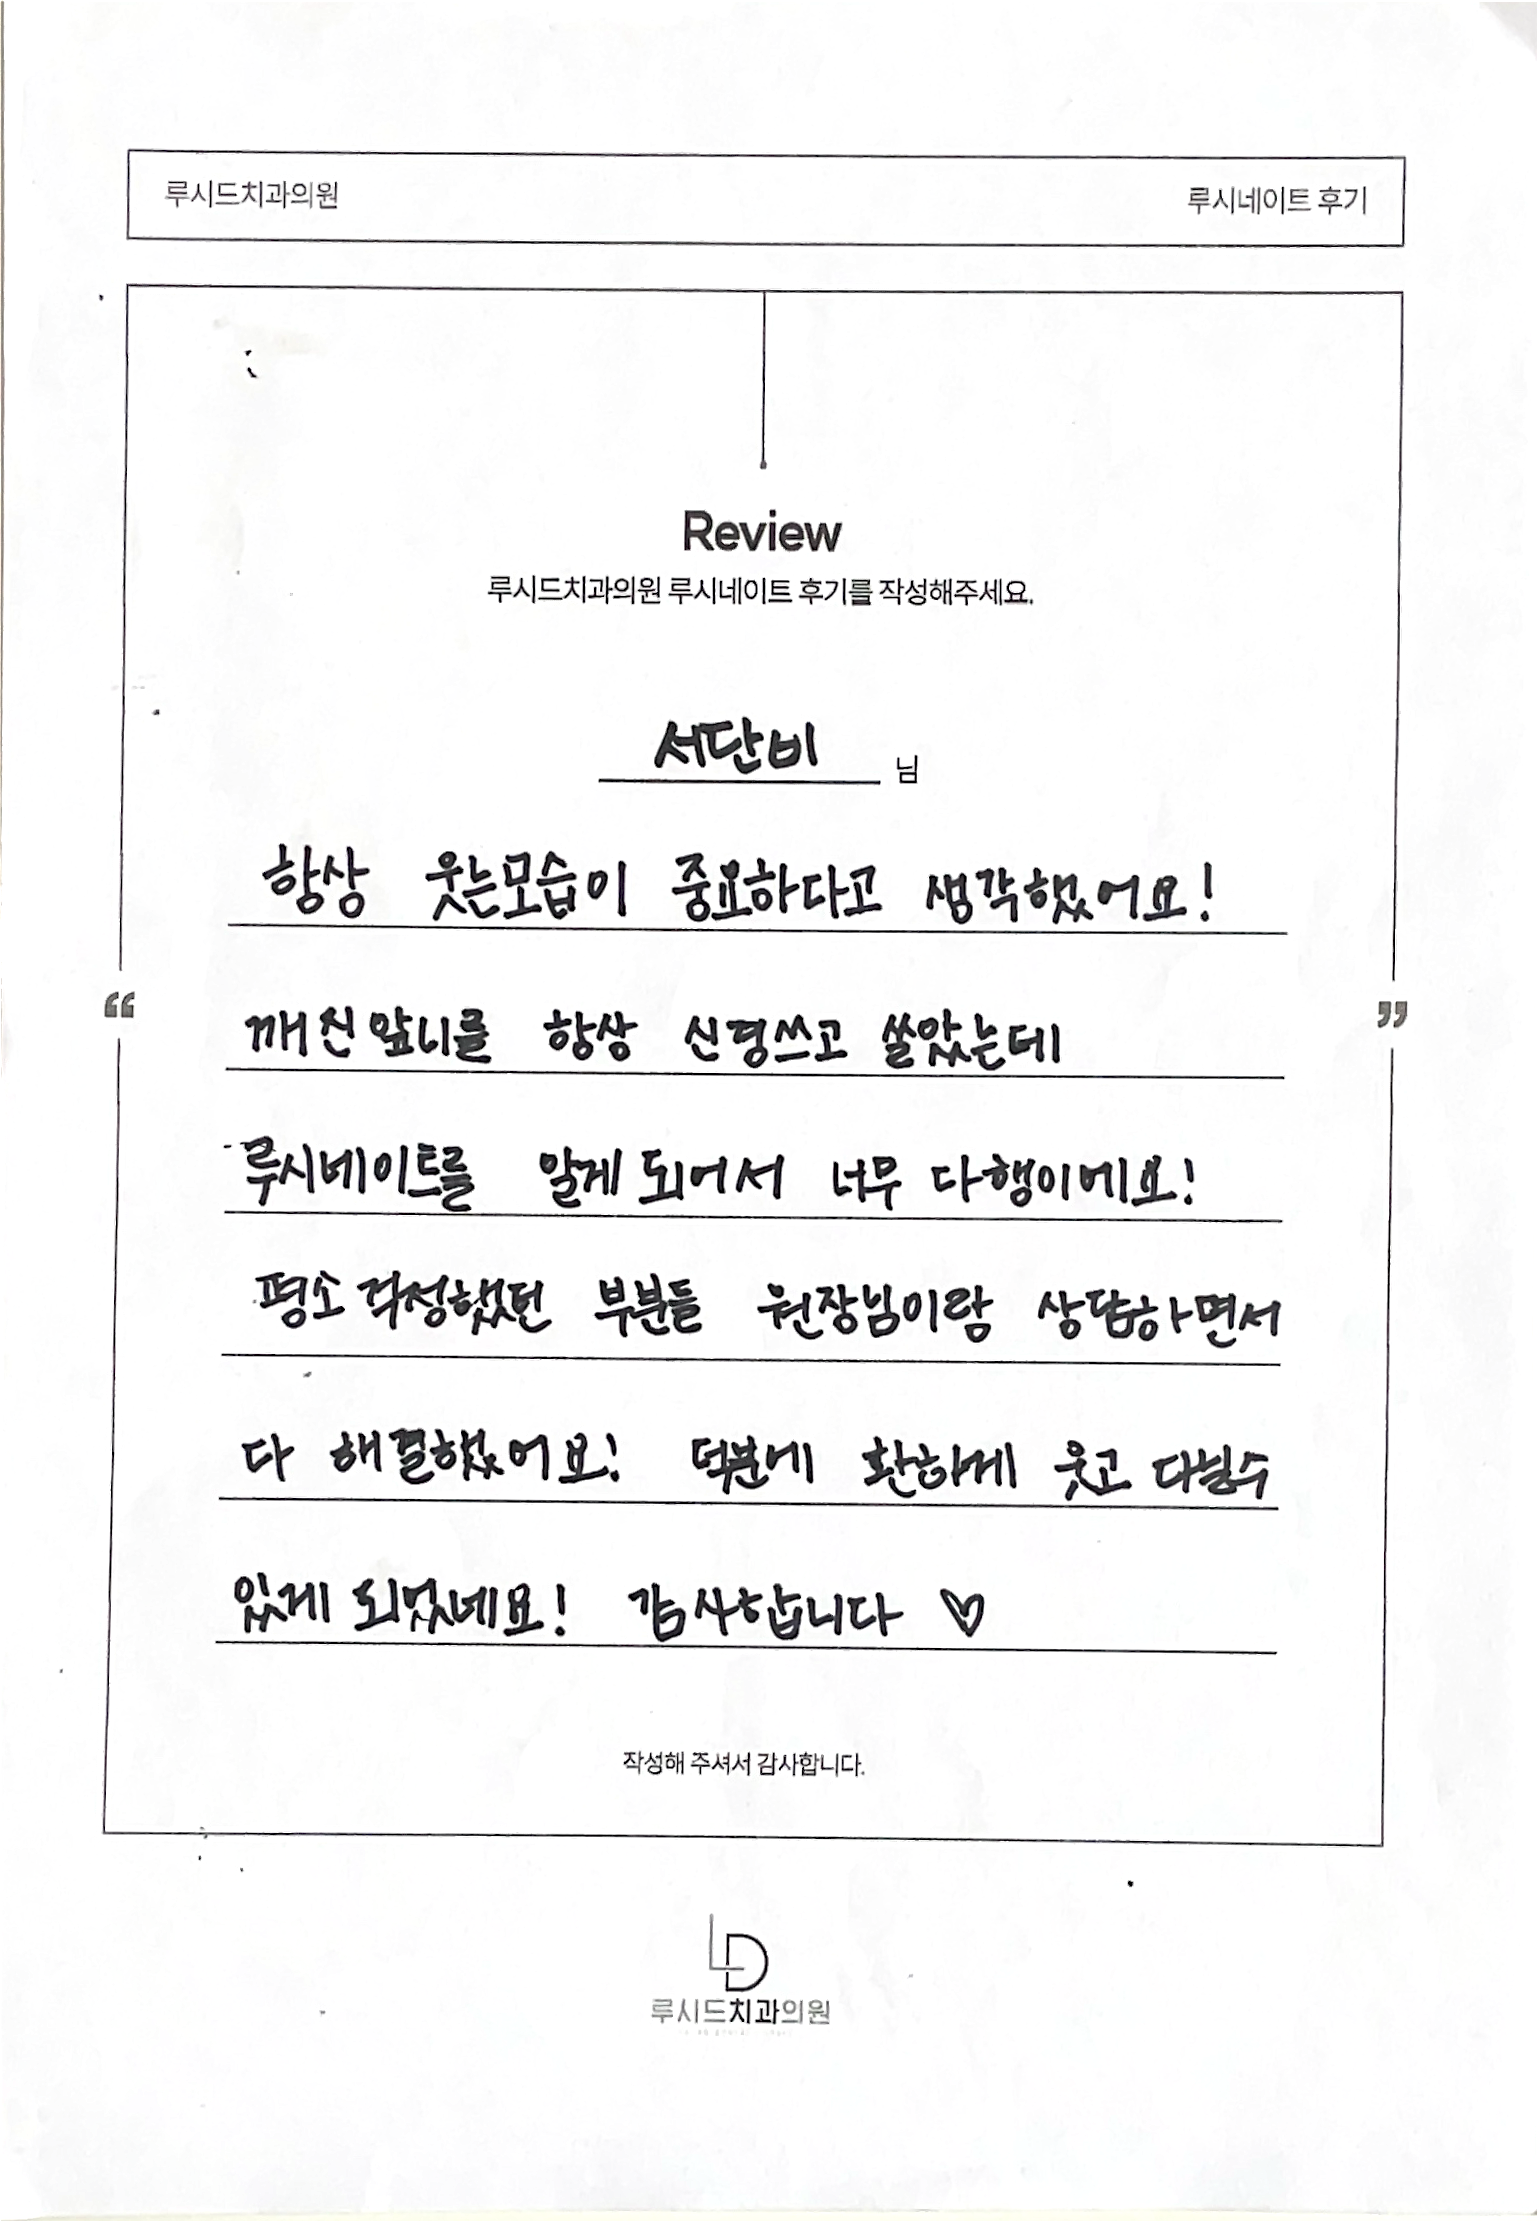 루시드치과의원 루시네이트 후기
Review
루시드치과의원 루시네이트 후기를 작성해주세요.
서단비 님
항상 웃는모습이 중요하다고 생각했어요!
“ 깨진앞니를 항상 신경쓰고 살았는데 ”
루시네이트를 알게 되어서 너무 다행이에요!
평소 걱정했던 부분들 원장님이랑 상담하면서
다 해결했어요! 덕분에 환하게 웃고 다닐수
있게 되었네요! 감사합니다 ♡
작성해 주셔서 감사합니다.
LD
루시드치과의원